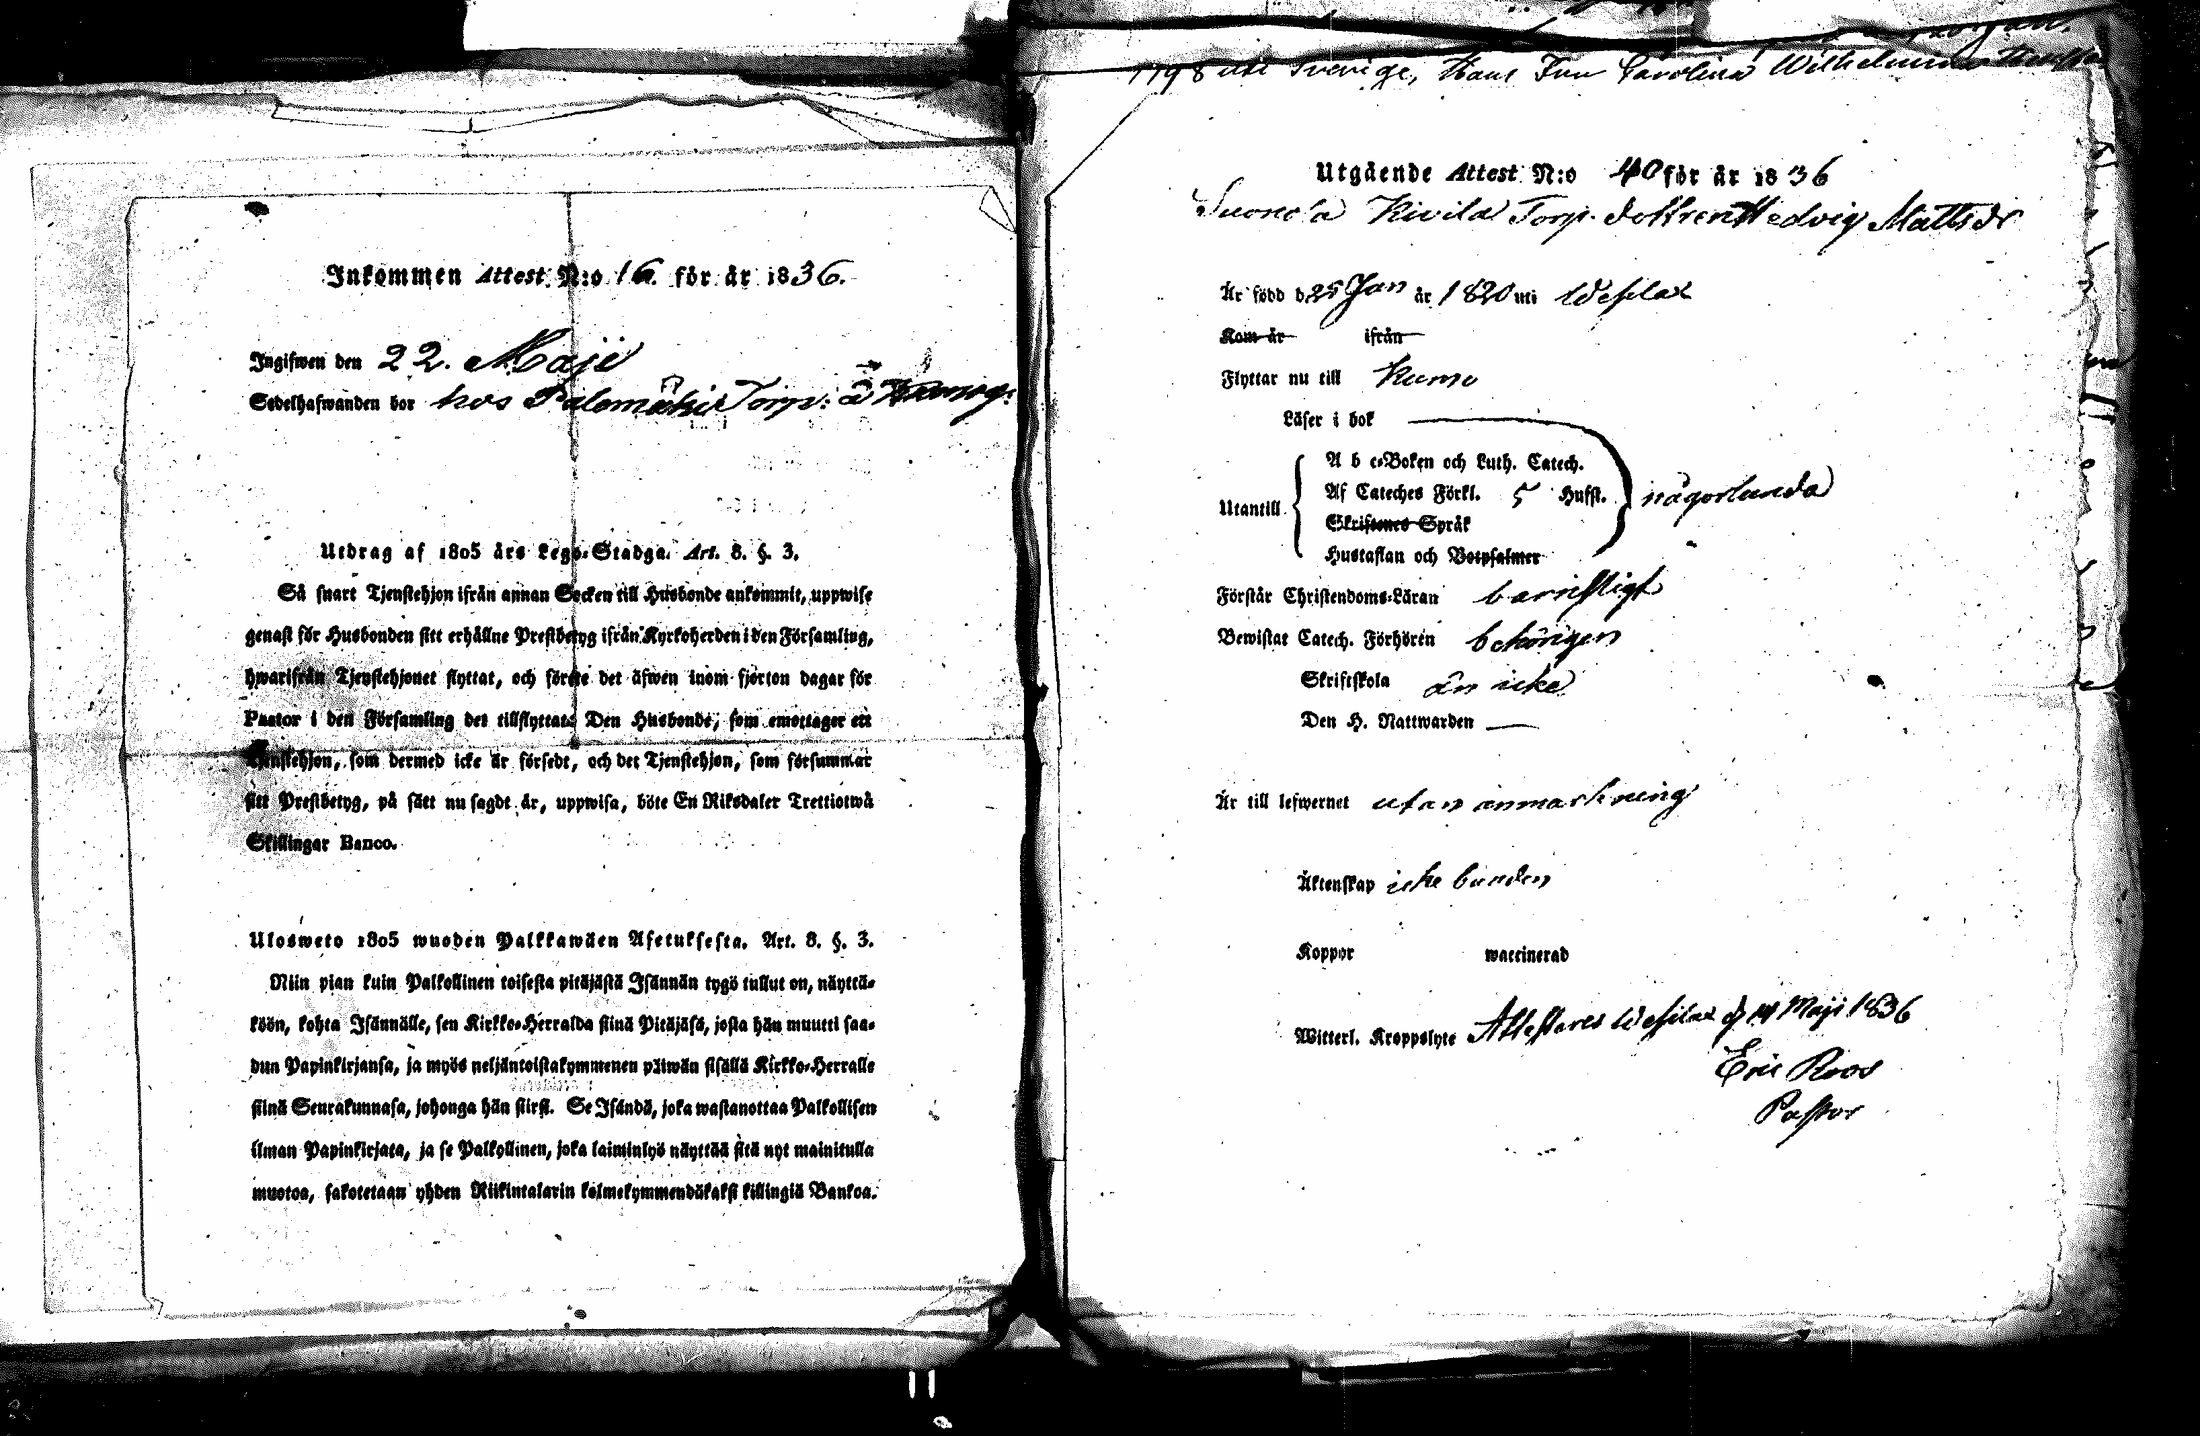 Inkommen Attest N:o 16. för år 1836.
Ingifwen den 22. Maji
Sedelhafwanden bor hos Palomäki Torp: å
Utdrag af 1805 års Lego-Stadga. Art. 8. §. 3.
Så snart Tjenstehjon ifrån annan Socken till Husbonde ankommit, uppwise
genast för Husbonden sitt erhållne Prestbetyg ifrån Kyrkoherden i den Församling,
hwarifrån Tjenstehjonet flyttat, och förete det äfwen inom fjorton dagar för
Pastor i den Församling det tillflyttat. Den Husbonde, som emottager ett
Tjenstehjon, som dermed icke är försedt, och det Tjenstehjon, som försummar
sitt Prestbetyg, på sätt nu sagdt är, uppwisa, böte En Riksdaler Trettiotwå
Skillingar Banco.
Ulosweto 1805 wuoden Palkkawäen Asetuksesta. Art. 8. §. 3.
Niin pian kuin Palkollinen toisesta pitäjästä Isännän tygö tullut on, näyttä-
köön, kohta Isännälle, sen Kirkko-Herralda siinä Pitäjäsä, josta hän muutti saa-
dun Papinkirjansa, ja myös neljäntoistakymmenen päiwän sisällä Kirkko-Herralle
siinä Seurakunnasa, johonga hän siirsi. Se Isändä, joka wastanottaa Palkollisen
ilman Papinkirjata, ja se Palkollinen, joka laiminlyö näyttää sitä nyt mainitulla
muotoa, sakotetaan yhden Riikintalarin kolmekymmendäkaksi killingiä Bankoa.
1798 uti Sverige, Hans Fru Carolina Wilhelmina
Utgående Attest N:o 40 för år 1836
Suonola Kivilä Torp. dottren Hedvig Mattsdr
Är född d. 25 Jan år 1820 uti Wesilax
Kom år ifrån
Flyttar nu till Kumo
Läser i bok
A b c-Boken och Luth. Catech.
Af Cateches Förkl. 5 Hufst.
Utantill
någorlunda
Skriftenes Språk
Hustaflan och Botpsalmer
Förstår Christendoms-Läran barnsligt
Bewistat Catech. Förhören behörigen
Skriftskola än icke
Den H. Nattwarden
Är till lefwernet utan anmärkning
Äktenskap icke bunden
Koppor waccinerad
Witterl. Kroppslyte Attesteras Wesilax d. 14 Maji 1836
Eric Roos
Pastor